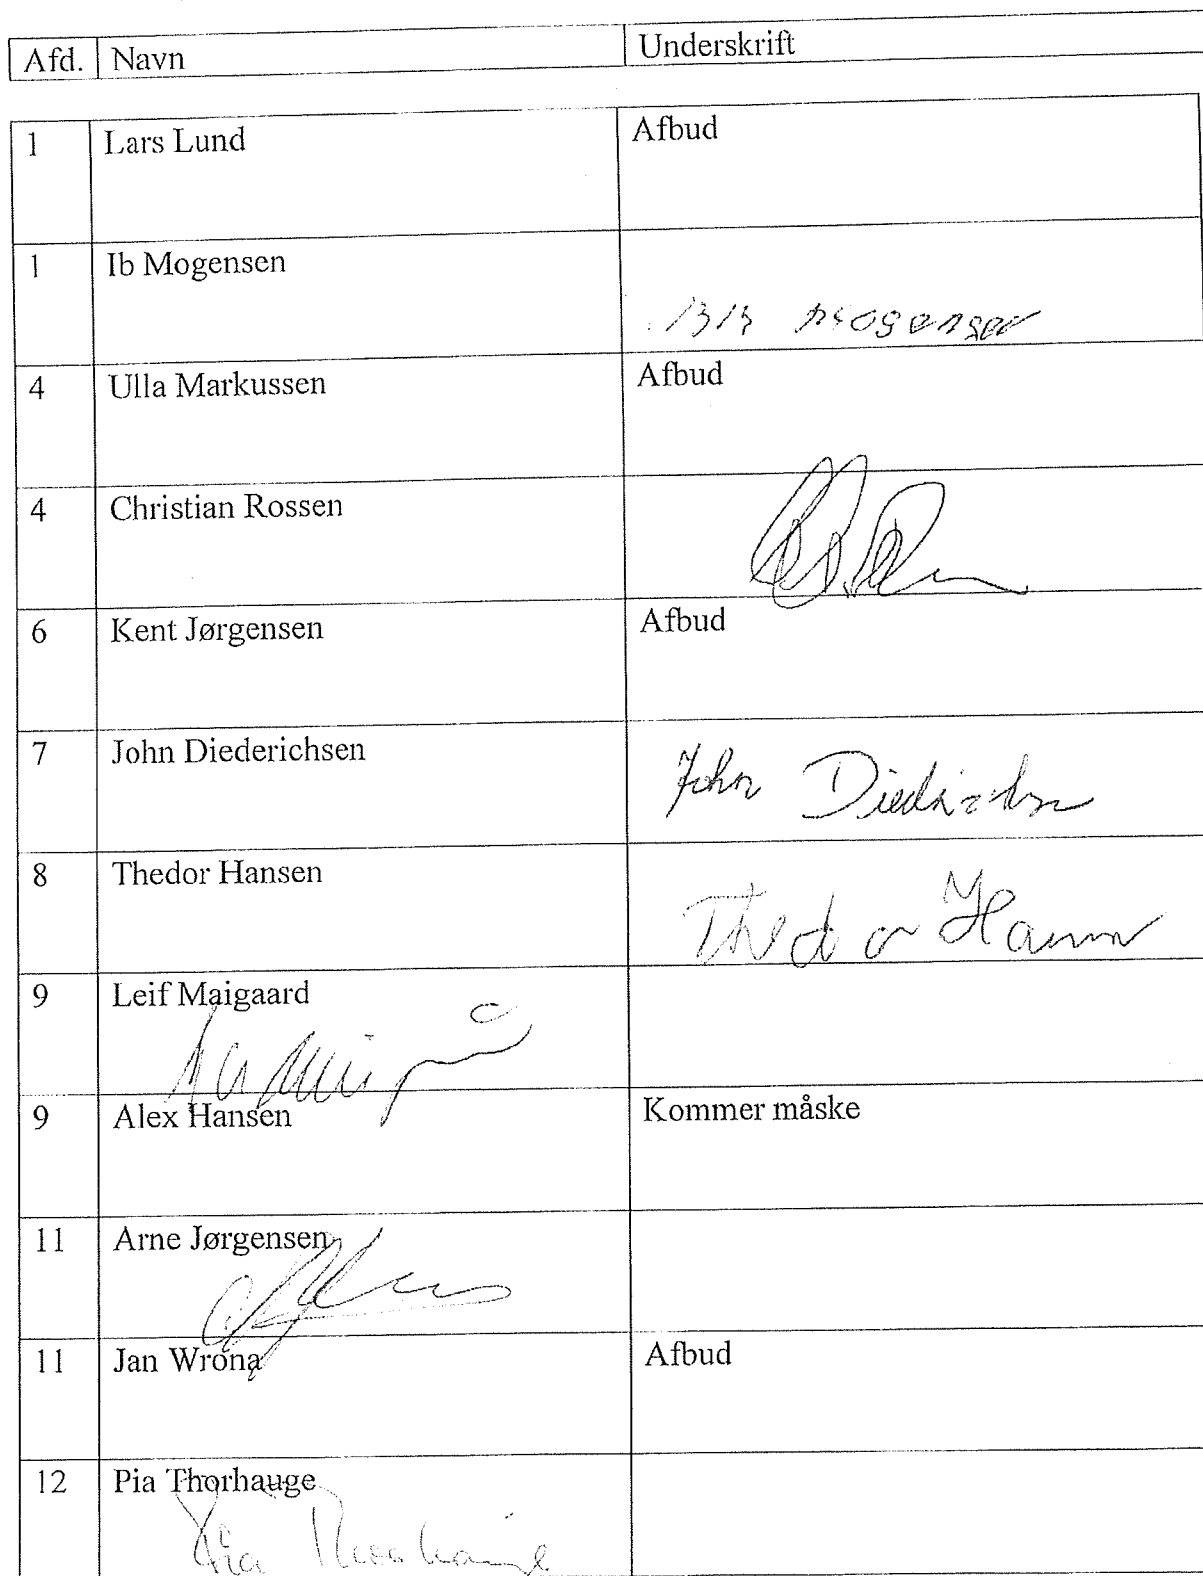 Afd. Navn Underskrift
1 Lars Lund Afbud
1 Ib Mogensen
Mogensen
4 Ulla Markussen Afbud
4 Christian Rossen
6 Kent Jørgensen Afbud
7 John Diederichsen
John
8 Thedor Hansen
Thedor Hansen
9 Leif Maigaard
9 Alex Hansen Kommer måske
11 Arne Jørgensen
11 Jan Wrona Afbud
12 Pia Thorhauge
Pia Thorhauge